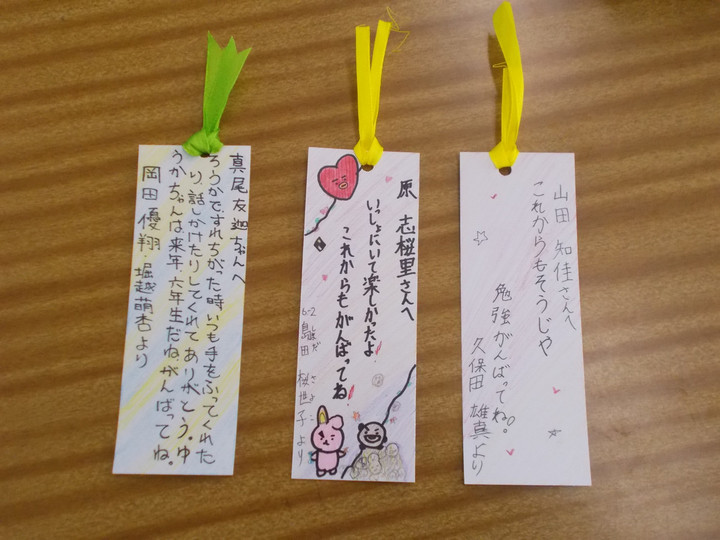 真尾友迦ちゃんへ
ろうかですれちがった時いつも手をふってくれた
り、話しかけたりしてくれてありがとう。ゆ
うかちゃんは、来年、六年生だね。がんばってね。
岡田優翔・堀越萌杏より
原 志桜里さんへ
いっしょにいて楽しかったよ
これからもがんばってね。
6-2 島田 桜世子より
山田 知佳さんへ
これからもそうじや
勉強がんばってね。
久保田 雄真より